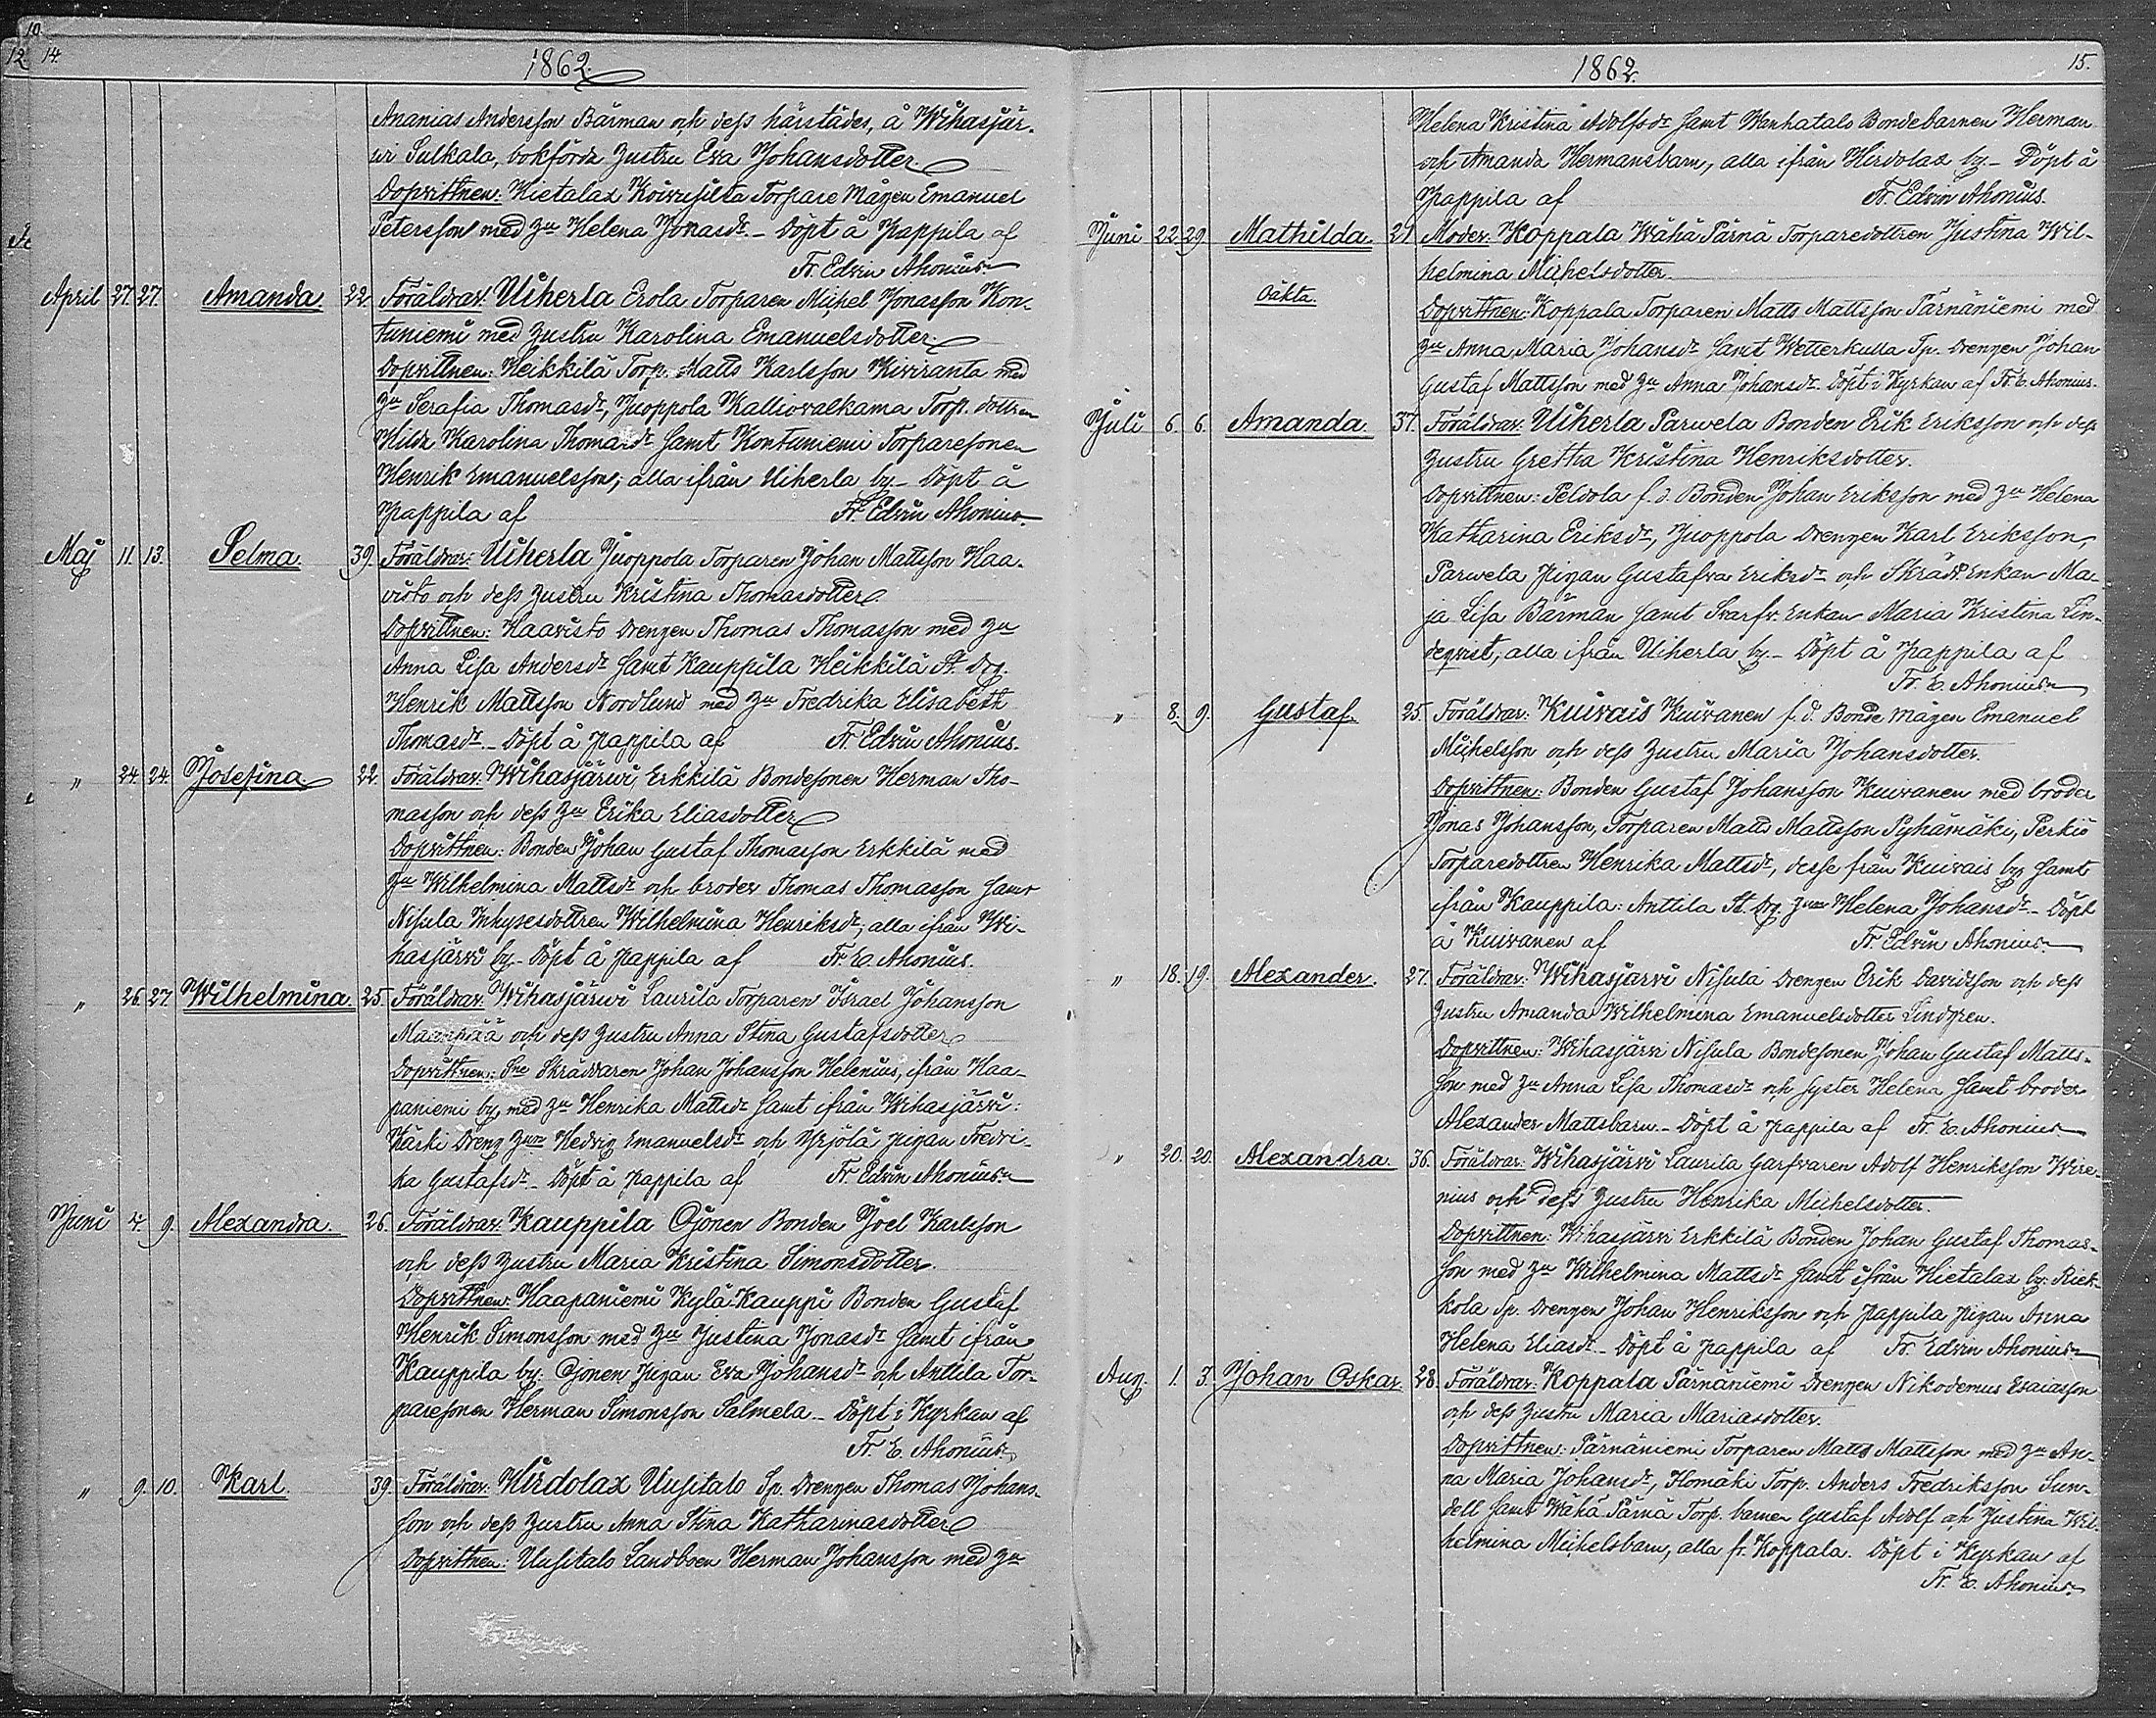 10.
12. 14. 1862.
Ananias Andersson Bärman och dess härstädes, å Wihasjär-
wi Sulkala, bokförda Hustru Eva Johansdotter
Dopvittnen: Hietalax Koivusilta Torpare Mågen Emanuel
Petersson med Hu Helena Jonasdr. Döpt å Pappila af
Fr. Edvin Ahonius.
April 27. 27. Amanda. 22. Föräldrar: Uiherla Erola Torparen Michel Jonasson Kon-
tuniemi med Hustru Karolina Emanuelsdotter.
Dopvittnen: Heikkilä Torp. Matts Karlsson Kiviranta med
Hu Serafia Thomasdr, Juoppola Kalliovalkama Torp. dottren
Hilda Karolina Thomasdr samt Kontuniemi Torparesonen
Henrik Emanuelsson, alla ifrån Uiherla by. Döpt å
Pappila af Fr. Edvin Ahonius.
Maj 11. 13. Selma. 39. Föräldrar: Uiherla Juoppola Torparen Johan Mattsson Haa-
visto och dess Hustru Kristina Thomasdotter.
Dopvittnen: Haavisto Drengen Thomas Thomasson med Hu
Anna Lisa Andersdr samt Kauppila Heikkilä St. Drg.
Henrik Mattsson Nordlund med Hu Fredrika Elisabeth
Thomasdr. Döpt å Pappila af Fr. Edvin Ahonius.
" 24. 24. Josefina 22. Föräldrar: Wihasjärwi, Erkkilä Bondesonen Herman Tho-
masson och dess Hu Erika Eliasdotter
Dopvittnen: Bonden Johan Gustaf Thomasson Erkkilä med
Hu Wilhelmina Mattsdr och broder Thomas Thomasson samt
Nisula Inhysesdottren Wilhelmina Henriksdr, alla ifrån Wi-
hasjärvi by. Döpt å Pappila af Fr. E. Ahonius.
" 26. 27. Wilhelmina. 25. Föräldrar: Wihasjärwi Laurila Torparen Israel Johansson
Maanpää och dess Hustru Anna Stina Gustafsdotter
Dopvittnen: Sne Skräddaren Johan Johansson Helenius, ifrån Haa-
paniemi by, med Hu Henrika Mattsdr samt ifrån Wihasjärvi:
Kärki Dreng Hun Hedvig Emanuelsdr och Yrjölä pigan Fredri-
ka Gustafsdr. Döpt å Pappila af Fr. Edvin Ahonius.
Juni 4. 9. Alexandra. 26. Föräldrar: Kauppila Ojonen Bonden Joel Karlsson
och dess Hustru Maria Kristina Simonsdotter.
Dopvittnen: Haapaniemi Kylä-Kauppi Bonden Gustaf
Henrik Simonsson med Hu Justina Jonasdr samt ifrån
Kauppila by: Ojonen pigan Eva Johansdr och Anttila Tor-
paresonen Herman Simonsson Salmela. Döpt i Kyrkan af
Fr. E. Ahonius.
" 9. 10. Karl. 39. Föräldrar: Hirdolax Uusitalo Sp. Drengen Thomas Johans-
son och dess Hustru Anna Stina Katharinasdotter
Dopvittnen: Uusitalo Landboen Herman Johansson med Hu
1862. 15.
Helena Kristina Adolfsdr samt Wanhatalo Bondebarnen Herman
och Amanda Hermansbarn, alla ifrån Hirdolax by. Döpt å
Pappila af Fr. Edvin Ahonius.
Juni 22. 29. Mathilda. 21. Moder: Koppala Wähä Pärnä Torparedottren Justina Wil-
helmina Michelsdotter.
Oäkta.
Dopvittnen: Koppala Torparen Matts Mattsson Pärnäniemi med
Hu Anna Maria Johansdr samt Wetterkulla Sp. Drengen Johan
Gustaf Mattsson med Hu Anna Johansdr. Döpt i Kyrkan af Fr. E. Ahonius.
Juli 6. 6. Amanda. 37. Föräldrar: Uiherla Parwela Bonden Erik Eriksson och dess
Hustru Gretha Kristina Henriksdotter.
Dopvittnen: Peldola f.d. Bonden Johan Eriksson med Hu Helena
Katharina Eriksdr, Juoppola Drengen Karl Eriksson,
Parwela pigan Gustafva Eriksdr och Skrädd. Enkan Ma-
ja Lisa Bärman samt Svarfv. Enkan Maria Kristina Lin-
deqvist, alla ifrån Uiherla by. Döpt å Pappila af
Fr. E. Ahonius
" 8. 9. Gustaf. 25. Föräldrar: Kuivais Kuivanen f.d. Bonde mågen Emanuel
Michelsson och dess Hustru Maria Johansdotter.
Dopvittnen: Bonden Gustaf Johansson Kuivanen med broder
Jonas Johansson, Torparen Matts Mattsson Pyhämäki, Perkiö
Torparedottren Henrika Mattsdr, desse från Kuivais by samt
ifrån Kauppila: Anttila St. Drg Hun Helena Johansdr. Döpt
å Kuivanen af Fr. Edvin Ahonius
" 18. 19. Alexander. 27. Föräldrar: Wihasjärvi Nisula Drengen Erik Davidsson och dess
Hustru Amanda Wilhelmina Emanuelsdotter Lindgren.
Dopvittnen: Wihasjärvi Nisula Bondesonen Johan Gustaf Matts-
son med Hu Anna Lisa Thomasdr och syster Helena samt broder
Alexander Mattsbarn. Döpt å Pappila af Fr. E. Ahonius
" 20. 20. Alexandra. 36. Föräldrar: Wihasjärvi Laurila Garfvaren Adolf Henriksson Wire-
nius och dess Hustru Henrika Michelsdotter.
Dopvittnen: Wihasjärvi Erkkilä Bonden Johan Gustaf Thomas-
son med Hu Wilhelmina Mattsdr samt ifrån Hietalax by: Riek-
kola Sp. Drengen Johan Henriksson och Pappila pigan Anna
Helena Eliasdr. Döpt å Pappila af Fr. Edvin Ahonius
Aug. 1. 3. Johan Oskar 28. Föräldrar: Koppala Pärnäniemi Drengen Nikodemus Esaiasson
och dess Hustru Maria Mariasdotter.
Dopvittnen: Pärnäniemi Torparen Matts Mattsson med Hu An-
na Maria Johansdr, Ilomäki Torp. Anders Fredriksson Sun-
dell samt Wähä Pärnä Torp. barnen Gustaf Adolf och Justina Wil-
helmina Michelsbarn, alla fr. Koppala. Döpt i Kyrkan af
Fr. E. Ahonius.